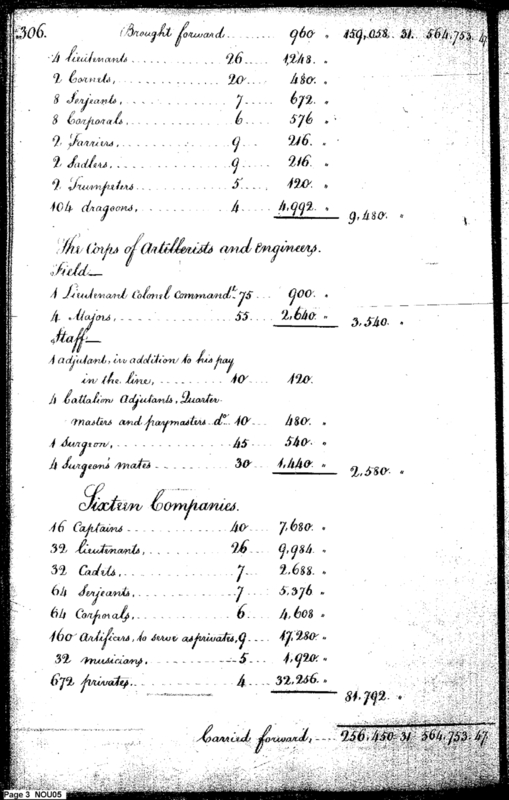 306. Brought forward ........ 960 " 159,058 31. 564,753. 47
4 lieutenants ........ 26 .... 1,248. "
2 Cornets, ........ 20 .... 480. "
8 Serjeants, ........ 7 .... 672. "
8 Corporals ........ 6 .... 576 "
2 Farriers ........ 9 .... 216. "
2 Sadlers ........ 9 .... 216. "
2 Trumpeters ........ 5 .... 120. "
104 dragoons, ........ 4 .... 4,992. " 9,480. "
The Corps of Artillerists and Engineers.
Field—
1 Lieutenant Colonel Commandt. 75 900. "
4 Majors, ........ 55 .... 2,640. " 3,540. "
Staff—
1 adjutant, in addition to his pay
in the line, ........ 10 .... 120.
4 Battalion Adjutants, Quarter-
masters and paymasters do. 10 .... 480. "
1 Surgeon, ........ 45 .... 540. "
4 Surgeon's mates ........ 30 .... 1,440. " 2,580. "
Sixteen Companies.
16 Captains ........ 40 .... 7,680. "
32 lieutenants, ........ 26 .... 9,984. "
32 Cadets, ........ 7 .... 2,688. "
64 Serjeants, ........ 7 .... 5,376 "
64 Corporals, ........ 6 .... 4,608 "
160 artificers, to serve as privates, 9 .... 17,280. "
32 musicians. ........ 5 .... 1,920. "
672 privates ........ 4 .... 32,256. "
81,792. "
Carried forward, .... 256,450 31 564,753. 47
Page 3 NOU05